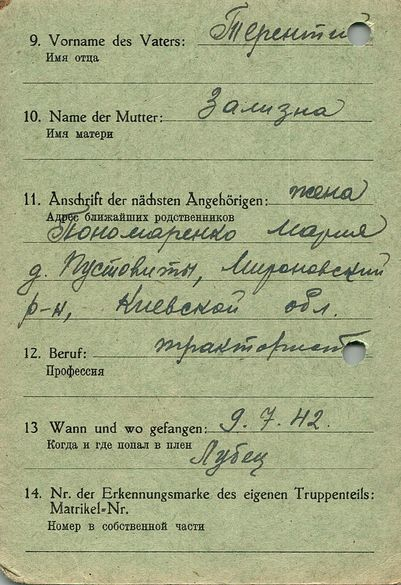 9. Vorname des Vaters: Терентий
Имя отца
10. Name der Mutter: Зализна
Имя матери
11. Anschrift der nächsten Angehörigen: жена
Адрес ближайших родственников
Пономаренко Мария
д. Пустовиты, Мироновский
р-н, Киевской обл.
12. Beruf: тракторист
Профессия
13 Wann und wo gefangen: 9.7.42.
Когда и где попал в плен
Лубец
14. Nr. der Erkennungsmarke des eigenen Truppenteils:
Matrikel=Nr.
Номер в собственной части